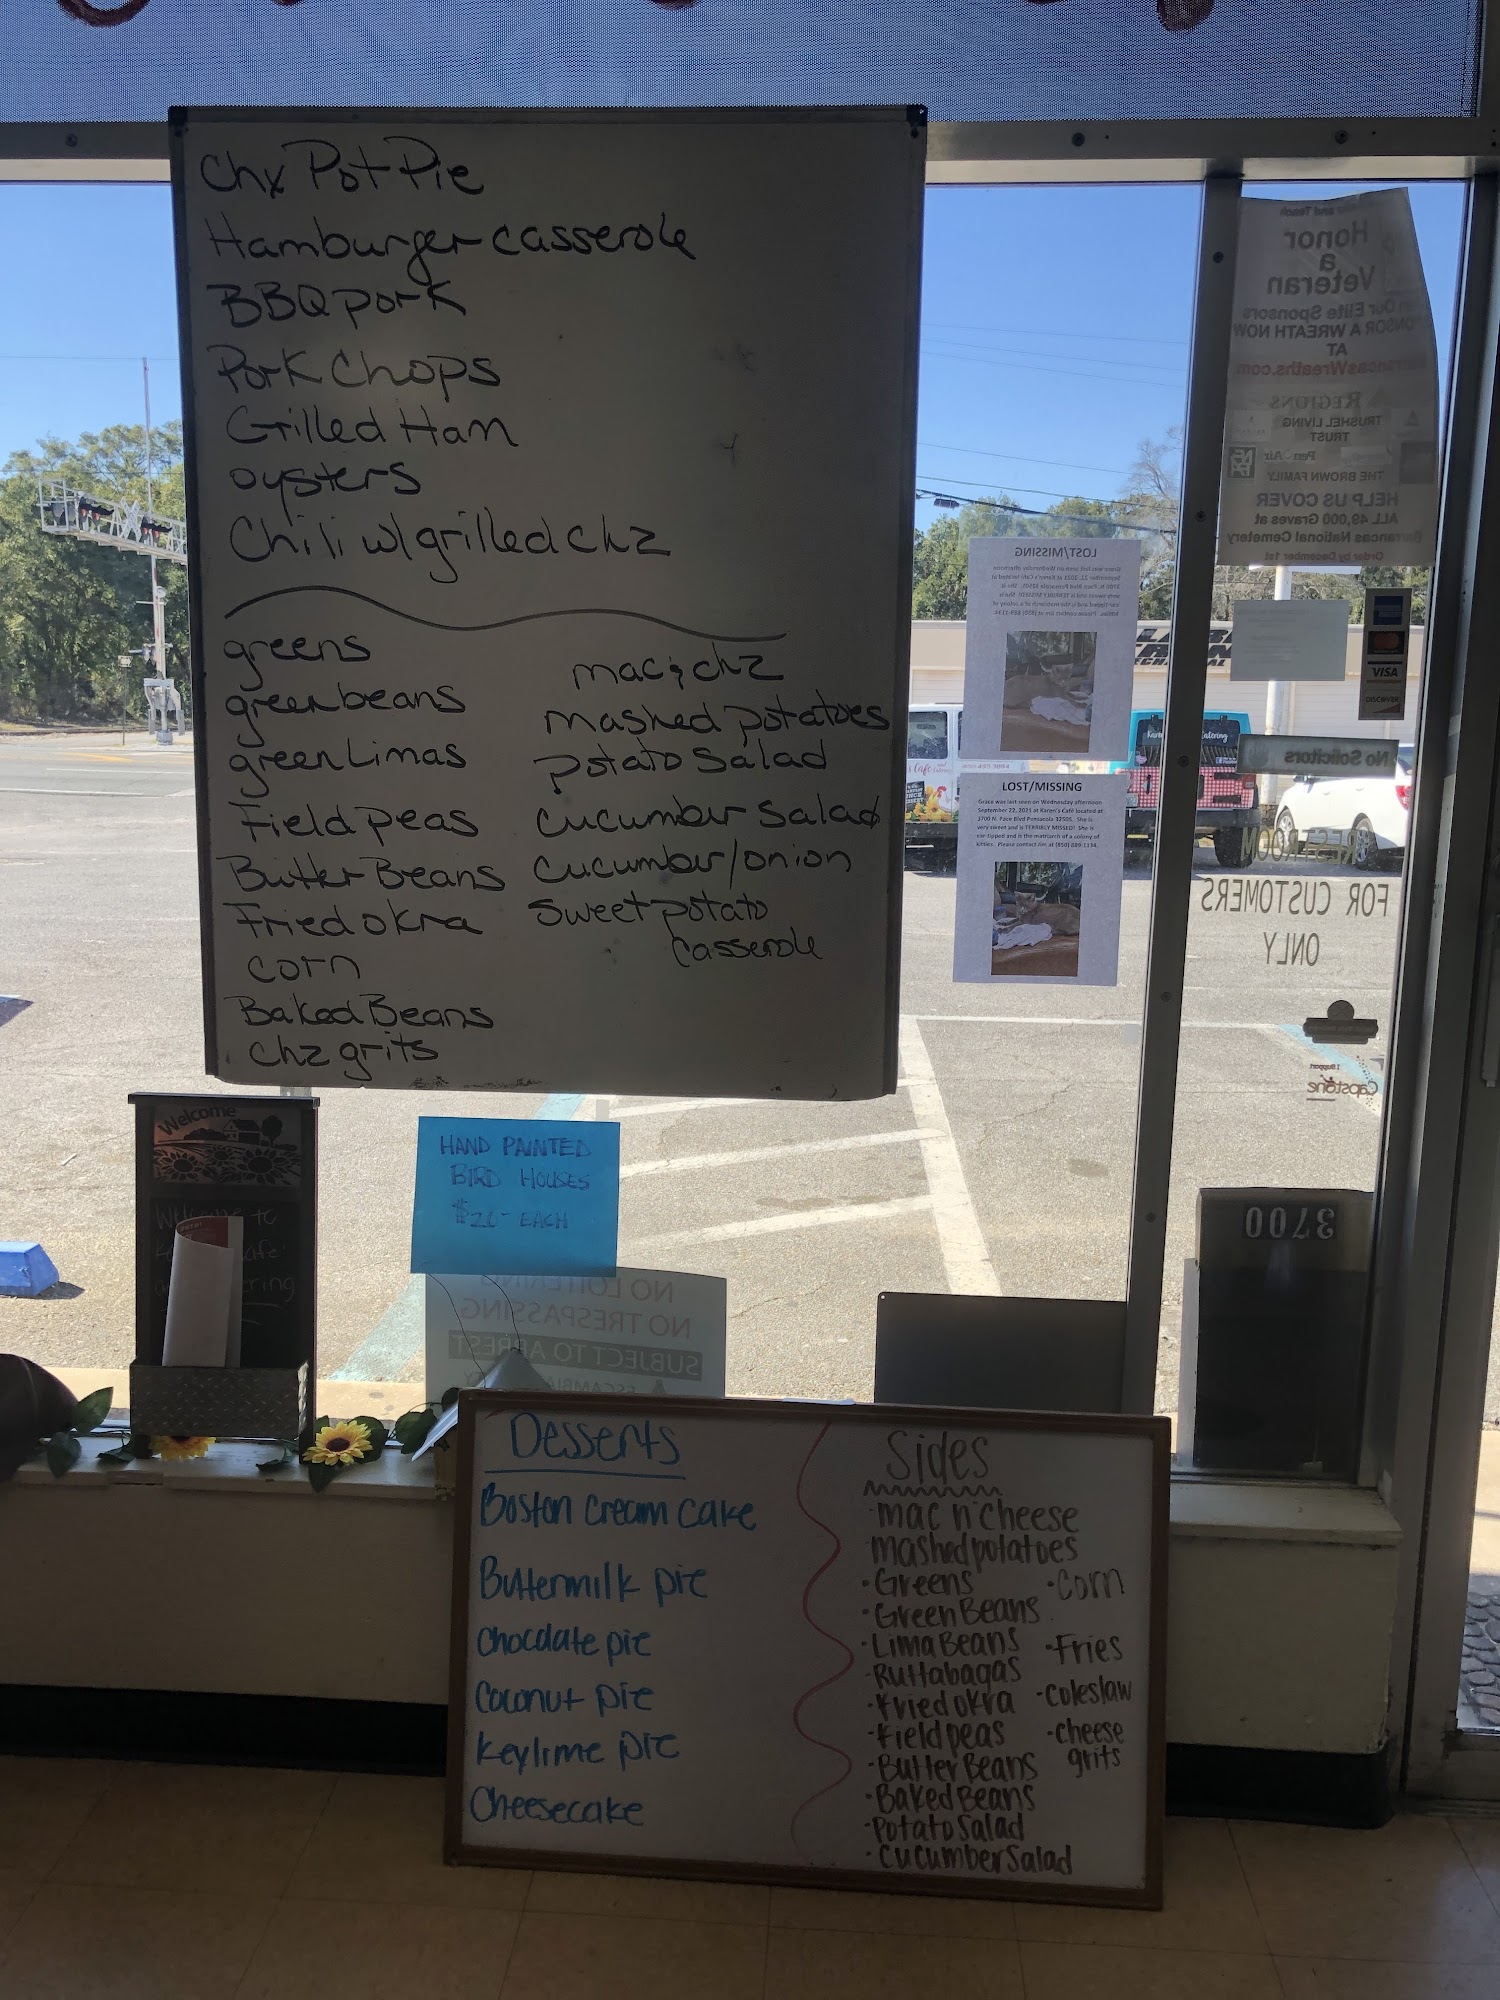 Chx Pot Pie
Hamburger casserole
BBQ pork
Pork Chops
Grilled Ham
oysters
Chili w/grilled chz
greens
green beans
green Limas
Field peas
Butter Beans
Fried okra
corn
Baked Beans
chz grits
mac & chz
mashed potatoes
potato salad
cucumber salad
cucumber/onion
sweet potato
casserole
Honor
a
Veteran
Our Elite Sponsors
SPONSOR A WREATH NOW
AT
BarrancasWreaths.com
REGIONS
TRUSHEL LIVING
TRUST
Pen Air
THE BROWN FAMILY
HELP US COVER
ALL 49,000 Graves at
Barrancas National Cemetery
Order by December 1st
LOST/MISSING
LOST/MISSING
Grace was last seen on Wednesday afternoon
September 22, 2021 at Karen's Café located at
3700 N. Pace Blvd Pensacola 32505. She is
very sweet and is TERRIBLY MISSED! She is
ear-tipped and is the matriarch of a colony of
kitties. Please contact Jim at (850) 889-1134.
VISA
DISCOVER
No Solicitors
RESTROOM
FOR CUSTOMERS
ONLY
I Support
Capstone
3700
Welcome
Welcome to
HAND PAINTED
BIRD HOUSES
$20- EACH
NO LOITERING
NO TRESPASSING
SUBJECT TO ARREST
Desserts
Boston cream cake
Buttermilk pie
Chocolate pie
Coconut pie
Keylime pie
Cheesecake
Sides
·mac n' cheese
mashed potatoes
·Greens
·Green Beans
·Lima Beans
·Ruttabagas
·Fried okra
·Field peas
·Butter Beans
·Baked Beans
·Potato Salad
·Cucumber Salad
·Corn
·Fries
·Coleslaw
·cheese
grits